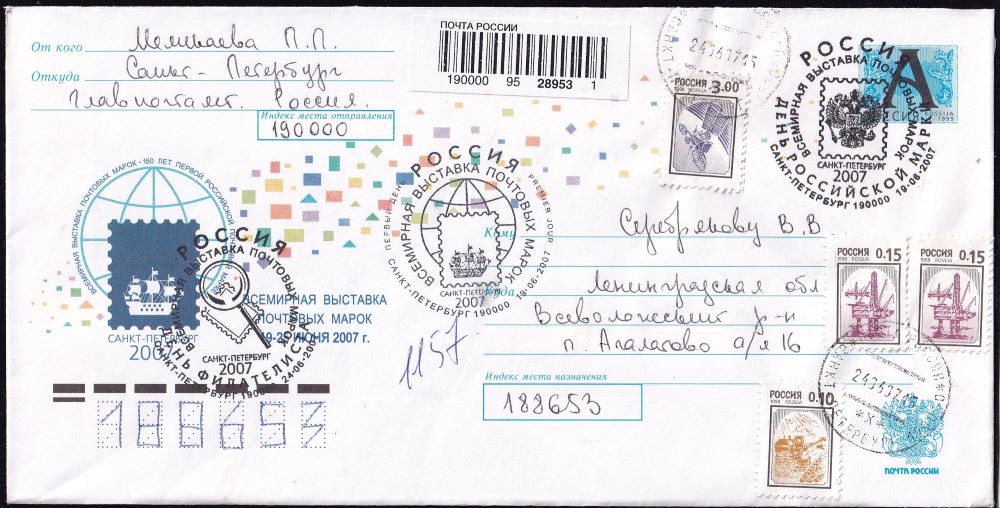 ПОЧТА РОССИИ
190000 95 28953 1
От кого П.П.
Откуда Санкт-Петербург
Главпочтамт. Россия.
Индекс места отправления
190000
РОССИЯ 3.00
1998 ROSSIJA
A
ROSSIJA
1999
РОССИЯ
ВСЕМИРНАЯ ВЫСТАВКА ПОЧТОВЫХ МАРОК
САНКТ-ПЕТЕРБУРГ
2007
ДЕНЬ РОССИЙСКОЙ МАРКИ
САНКТ-ПЕТЕРБУРГ 190000 19-06-2007
ВСЕМИРНАЯ ВЫСТАВКА ПОЧТОВЫХ МАРОК-150 ЛЕТ ПЕРВОЙ РОССИЙСКОЙ ПОЧТОВОЙ МАРКЕ
САНКТ-ПЕТЕРБУРГ
2007
РОССИЯ
ВСЕМИРНАЯ ВЫСТАВКА ПОЧТОВЫХ МАРОК
САНКТ-ПЕТЕРБУРГ
2007
ДЕНЬ ФИЛАТЕЛИСТА
САНКТ-ПЕТЕРБУРГ 190000 24-06-2007
ВСЕМИРНАЯ ВЫСТАВКА
ПОЧТОВЫХ МАРОК
19-25 ИЮНЯ 2007 г.
РОССИЯ
ПЕРВЫЙ ДЕНЬ PREMIER JOUR
ВСЕМИРНАЯ ВЫСТАВКА ПОЧТОВЫХ МАРОК
САНКТ-ПЕТЕРБУРГ
2007
САНКТ-ПЕТЕРБУРГ 190000 19-06-2007
1157
Кому Серебрякову В.В
Куда Ленинградская обл
Всеволожский р-н
п. Агалатово а/я 16
Индекс места назначения
188653
188653
РОССИЯ 0.15
1998 ROSSIJA
РОССИЯ 0.15
1998 ROSSIJA
РОССИЯ 0.10
1998 ROSSIJA
ПОЧТА РОССИИ